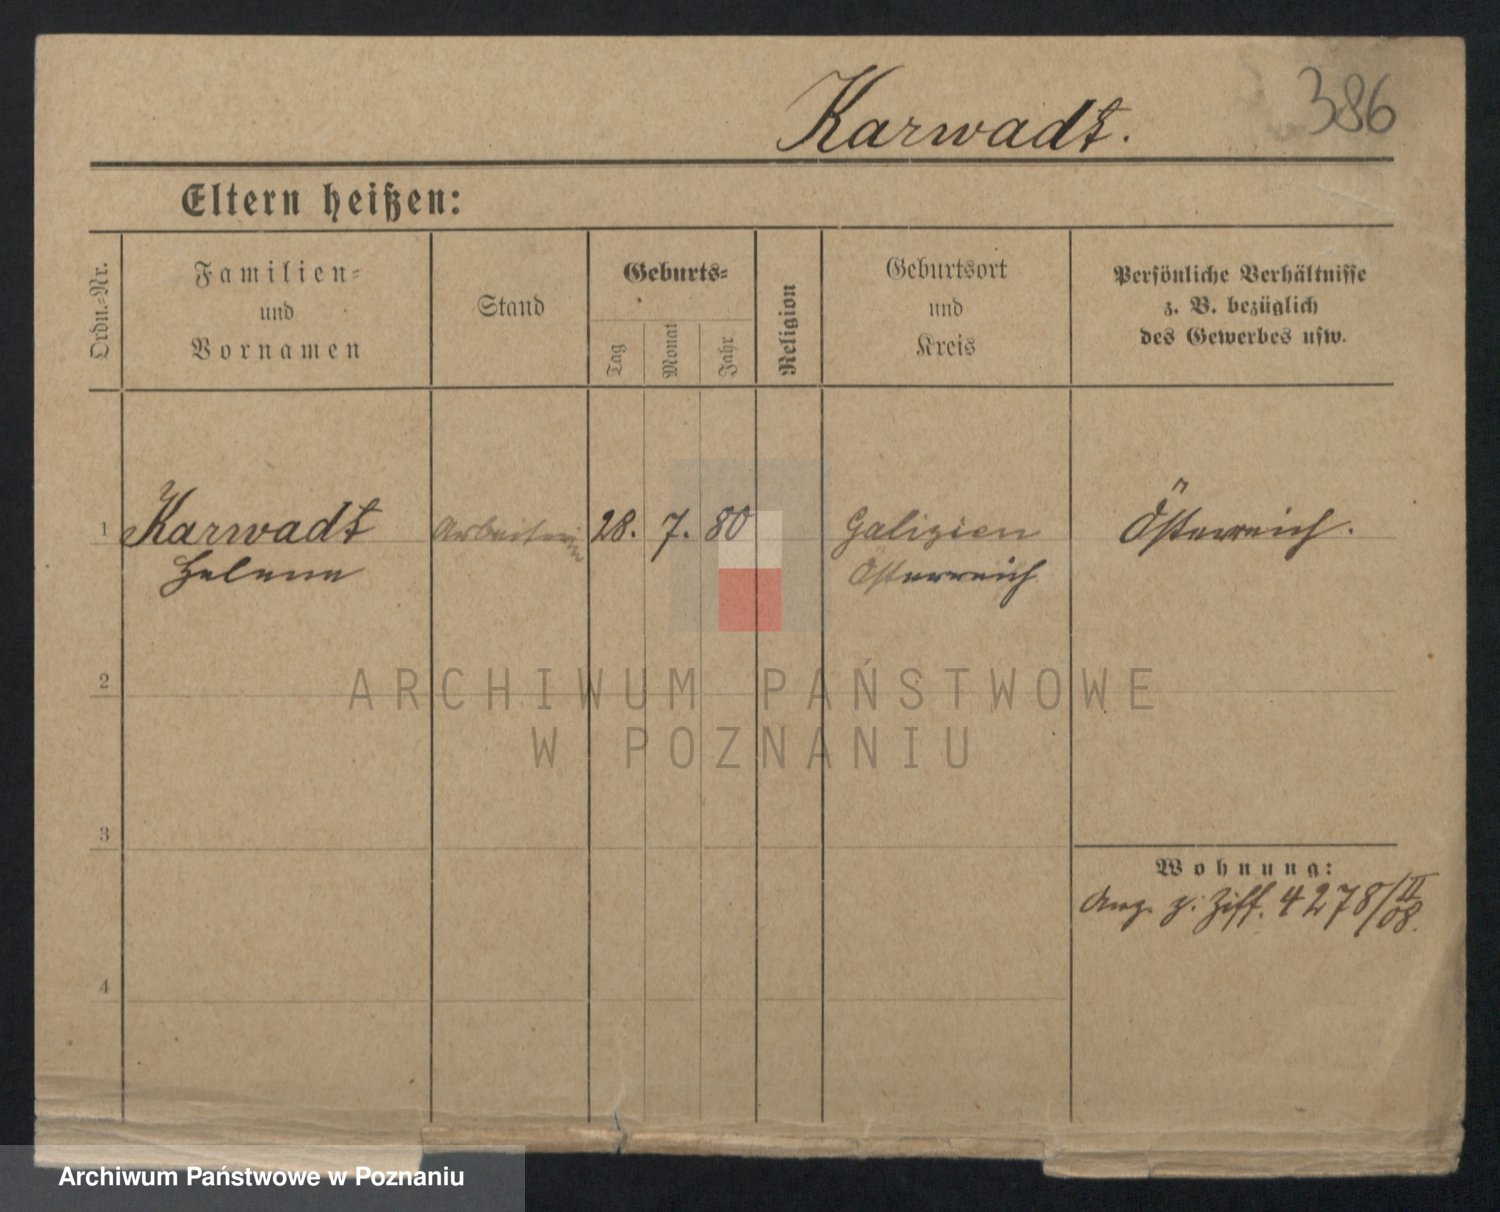 Karwadt.
386
Eltern heißen:
Ordn.-Nr.
Familien-
und
Vornamen
Stand
Geburts-
Tag
Monat
Jahr
Religion
Geburtsort
und
Kreis
Persönliche Verhältnisse
z. B. bezüglich
des Gewerbes usw.
1 Karwadt Arbeiterin 28. 7. 80 Galizien Österreich.
Helene Österreich
2
ARCHIWUM PAŃSTWOWE
W POZNANIU
3
Wohnung:
Anz. z. Ziff. 4278/II 08.
4
Archiwum Państwowe w Poznaniu